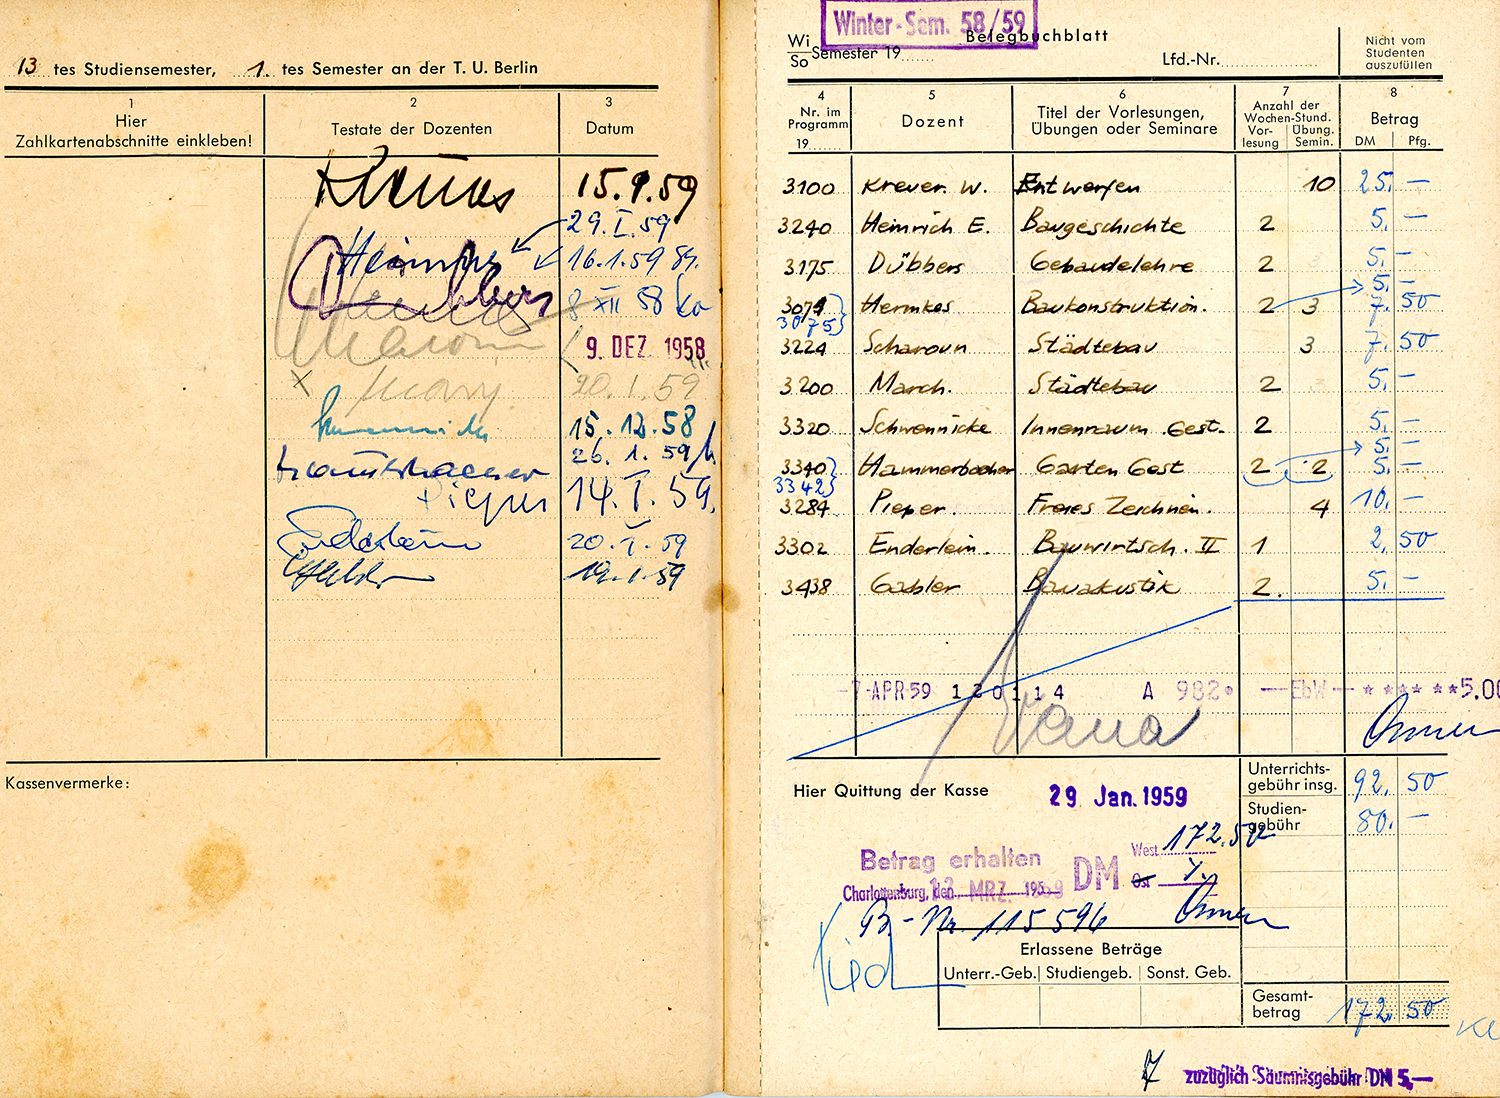 13 tes Studiensemester, 1. tes Semester an der T. U. Berlin
1 2 3
Hier
Zahlkartenabschnitte einkleben!
Testate der Dozenten
Datum
15.1.59
29.I.59
Heinrich
16.1.59
8 XII 58
9. DEZ. 1958
20.1.59
15.12.58
26.1.59
Pieper
14.I.59.
20.I.59
19.1.59
Kassenvermerke:
Winter-Sem. 58/59
Wi
So
Semester 19
Belegbuchblatt
Lfd.-Nr.
Nicht vom
Studenten
auszufüllen
4 5 6 7 8
Nr. im
Programm
19
Dozent
Titel der Vorlesungen,
Übungen oder Seminare
Anzahl der
Wochen-Stund.
Vor-
lesung
Übung.
Semin.
Betrag
DM Pfg.
3100 Kreuer. W. Entwerfen 10 25. —
3240 Heinrich E. Baugeschichte 2 5. —
3175 Dübbers Gebäudelehre 2 5. —
5. —
3074 Hermkes Baukonstruktion. 2 3 7. 50
3075
3224 Scharoun Städtebau 3 7. 50
3200 March. Städtebau 2 5. —
3320 Schwennicke Innenraum Gest. 2 5. —
5. —
3340 Hammerbacher Garten Gest 2 2 5. —
3342
3284 Pieper. Freies Zeichnen. 4 10. —
3302 Enderlein. Bauwirtsch. II 1 2. 50
3438 Gabler Bauakustik 2. 5. —
-7-APR-59 120114 A 982• —EbW— ★★★★★★5.00
Hier Quittung der Kasse
29. Jan. 1959
Unterrichts-
gebühr insg. 92. 50
Studien-
gebühr 80. —
Betrag erhalten
Charlottenburg, den 12. MRZ. 1959
DM
West 172.50
Ost
B.-Nr. 115596
Erlassene Beträge
Unterr.-Geb. Studiengeb. Sonst. Geb.
Gesamt-
betrag 172. 50
zuzüglich Säumnisgebühr DM 5,—